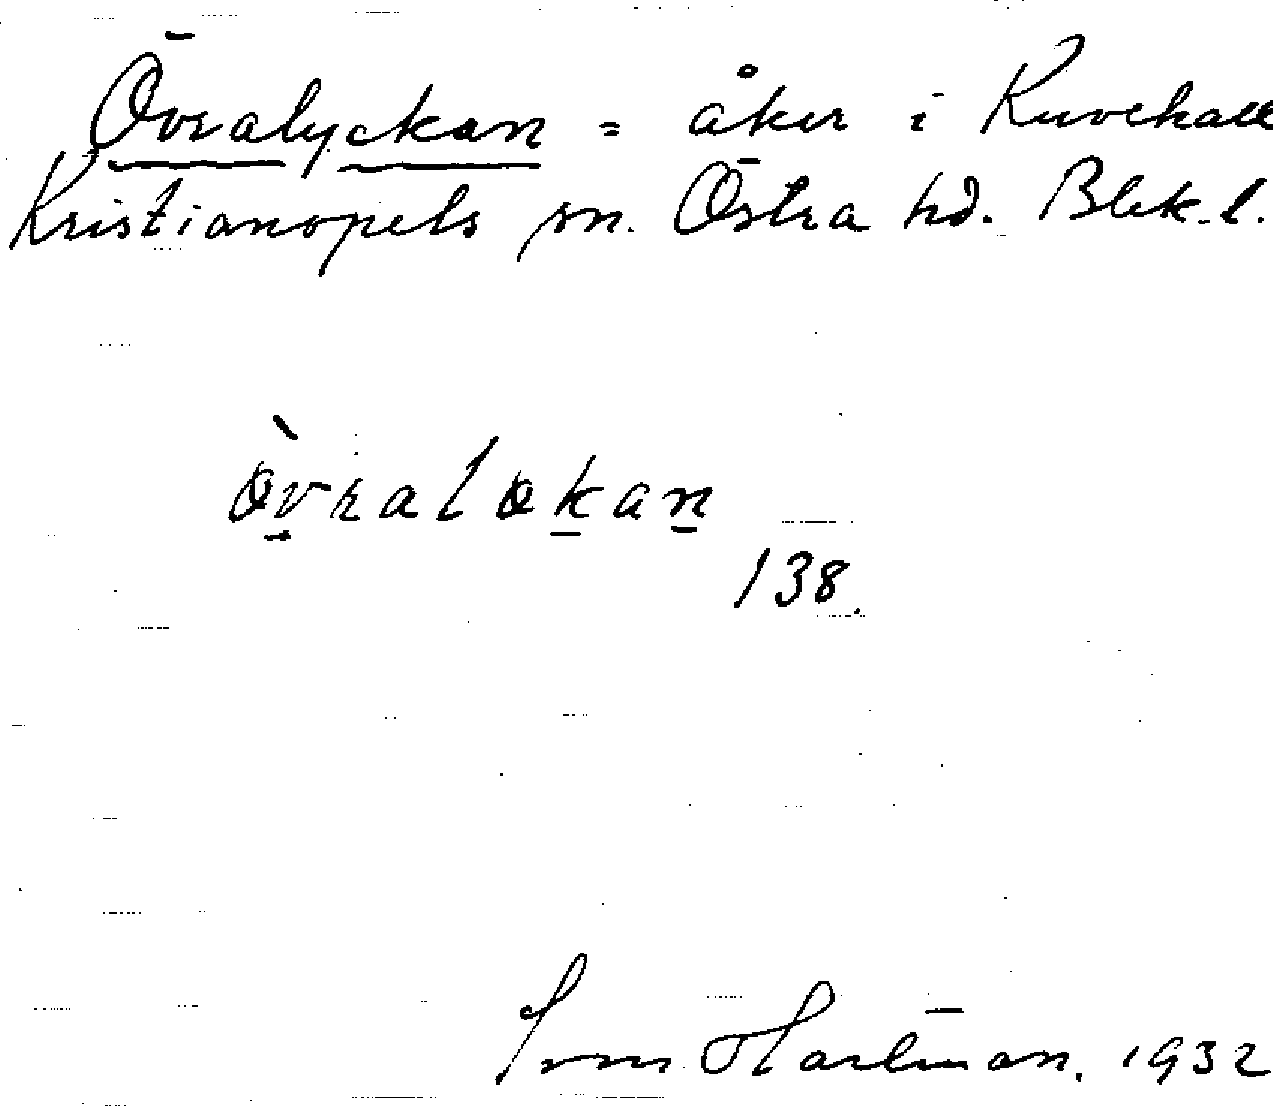 Övralyckan = åker i Kuvehall
Kristianopels sn. Östra hd. Blek. l.
övralokan
138.
Hartman. 1932